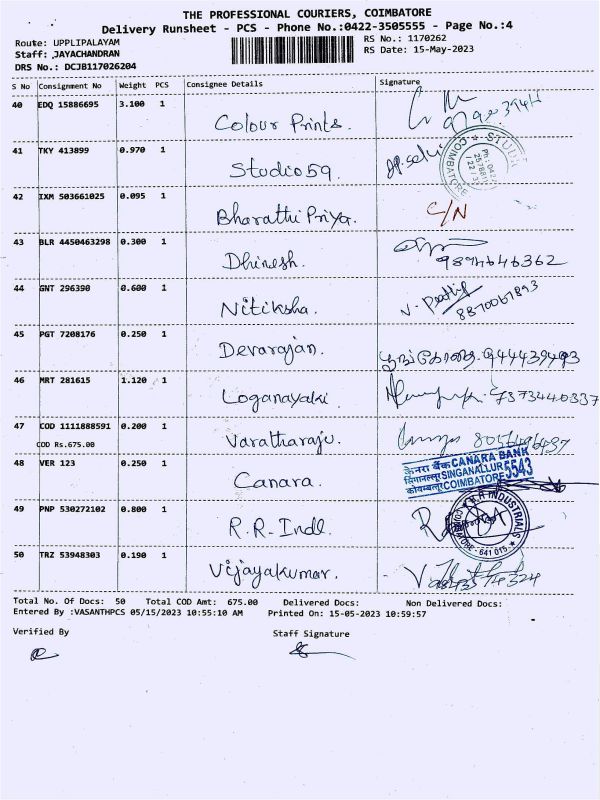 THE PROFESSIONAL COURIERS, COIMBATORE
Delivery Runsheet - PCS - Phone No.:0422-3505555 - Page No.:4
Route: UPPLIPALAYAM
RS No.: 1170262
Staff: JAYACHANDRAN
RS Date: 15-May-2023
DRS No.: DCJB117026204
S No Consignment No Weight PCS Consignee Details Signature
40 EDQ 15886695 3.100 1 Colour Prints.
41 TKY 413899 0.970 1 Studio 59.
COIMBATORE STUDI
42 IXM 503661025 0.095 1 Bharathi Priya. C/N
43 BLR 4450463298 0.300 1 Dhinesh. 9894646362
44 GNT 296390 0.600 1 Nitiksha. 8870067893
45 PGT 7208176 0.250 1 Devarajan.
46 MRT 281615 1.120 1 Loganayaki 7373440337
47 COD 1111888591 0.200 1 Varatharaju.
COD Rs.675.00
48 VER 123 0.250 1 Canara.
केनरा बैंक CANARA BANK
सिंगानल्लूर SINGANALLUR 5543
कोयम्बत्तूर COIMBATORE
49 PNP 530272102 0.800 1 R.R-Indl.
R R INDUSTRIALS COIMBATORE - 641 015
50 TRZ 53948303 0.190 1 Vijayakumar.
Total No. Of Docs: 50 Total COD Amt: 675.00 Delivered Docs: Non Delivered Docs:
Entered By :VASANTHPCS 05/15/2023 10:55:10 AM Printed On: 15-05-2023 10:59:57
Verified By Staff Signature